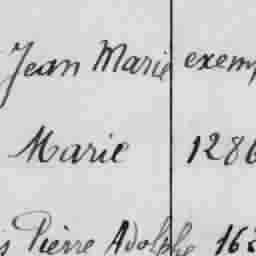 Jean Marie exem
Marie 1286
Pierre Adolphe 163